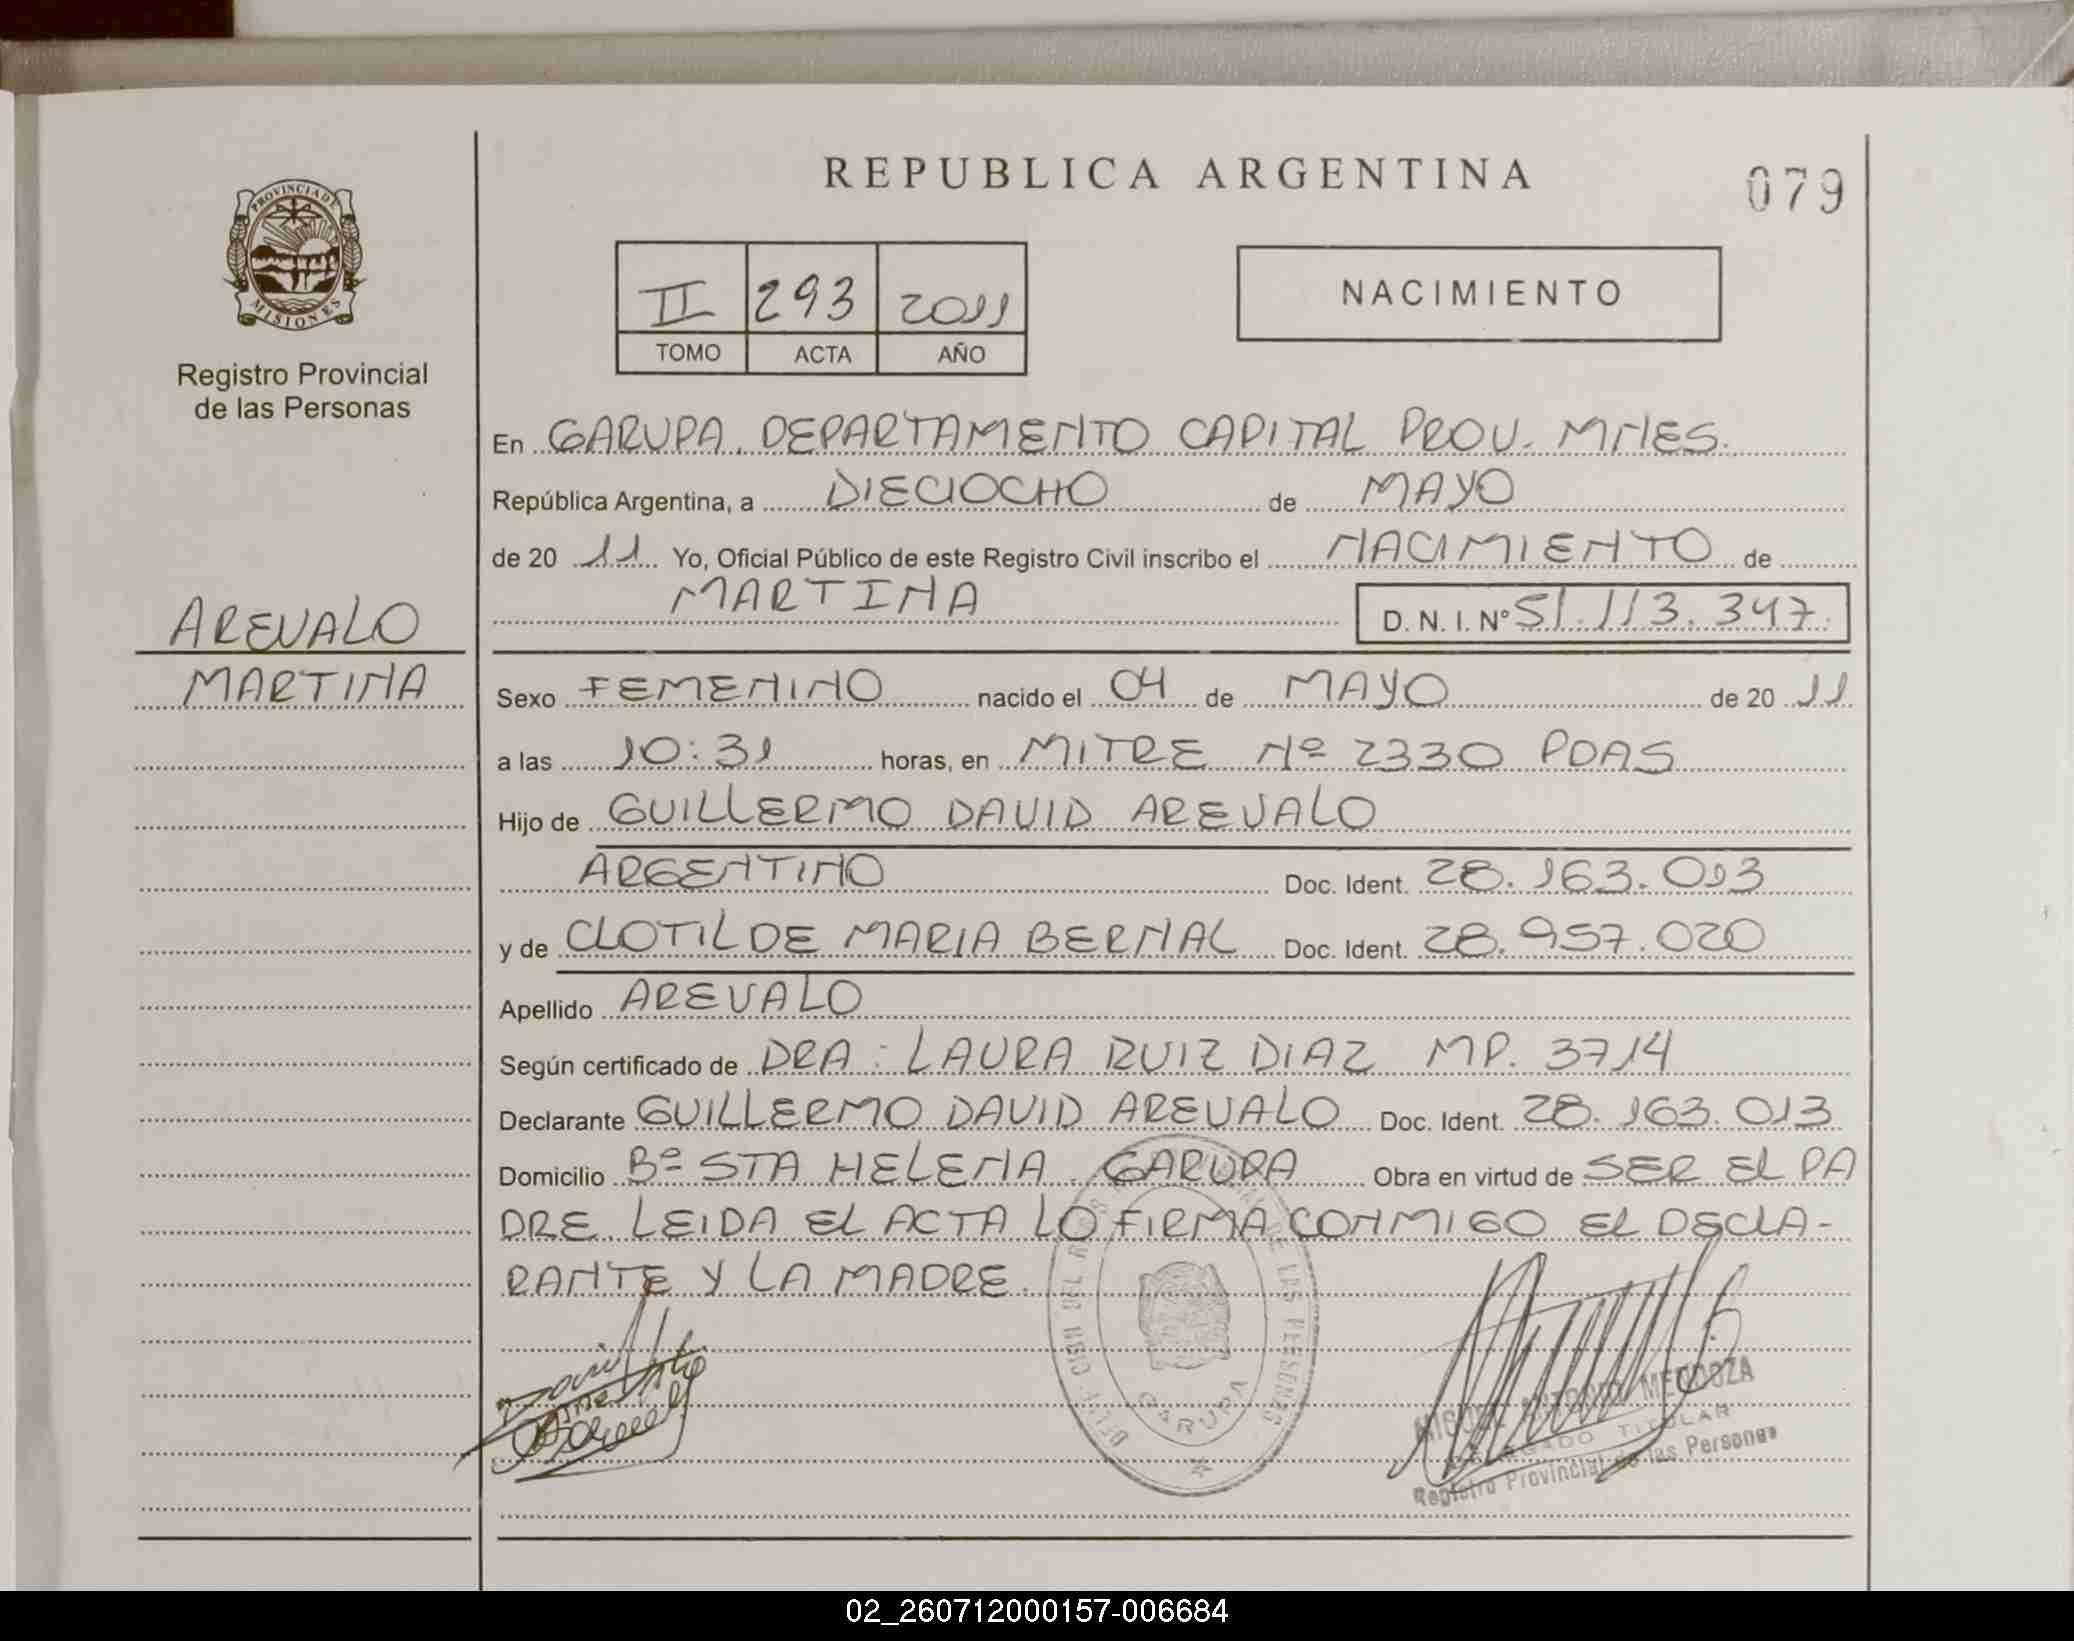 REPUBLICA ARGENTINA
079
PROVINCIA DE
MISIONES
Registro Provincial
de las Personas
II 293 2011
TOMO ACTA AÑO
NACIMIENTO
En GARUPA, DEPARTAMENTO CAPITAL PROV. MNES.
República Argentina, a DIECIOCHO de MAYO
de 20 11 Yo, Oficial Público de este Registro Civil inscribo el NACIMIENTO de
MARTINA D. N. I. Nº 51.113.347.
AREVALO
MARTINA
Sexo FEMENINO nacido el 04 de MAYO de 20 11
a las 10:31 horas, en MITRE Nº 2330 PDAS
Hijo de GUILLERMO DAVID AREVALO
ARGENTINO Doc. Ident. 28.163.013
y de CLOTILDE MARIA BERNAL Doc. Ident. 28.957.020
Apellido AREVALO
Según certificado de DRA: LAURA RUIZ DIAZ MP. 3714
Declarante GUILLERMO DAVID AREVALO Doc. Ident. 28.163.013
Domicilio Bº STA HELENA. GARUPA Obra en virtud de SER EL PA
DRE. LEIDA EL ACTA LO FIRMA CONMIGO EL DECLA-
RANTE Y LA MADRE.
DE LAS PERSONAS
GARUPA
MIGUEL ANTONIO MENDOZA
DELEGADO TITULAR
Registro Provincial de las Personas
02_260712000157-006684